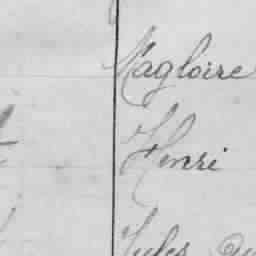 Magloire
Henri
Jules